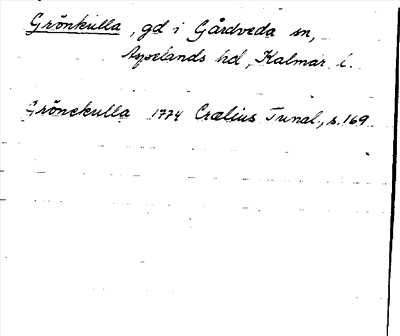 Grönkulla, gd i Gårdveda sn,
Aspelands hd, Kalmar l.
Grönekulla 1774 Crælius Tunal., s. 169